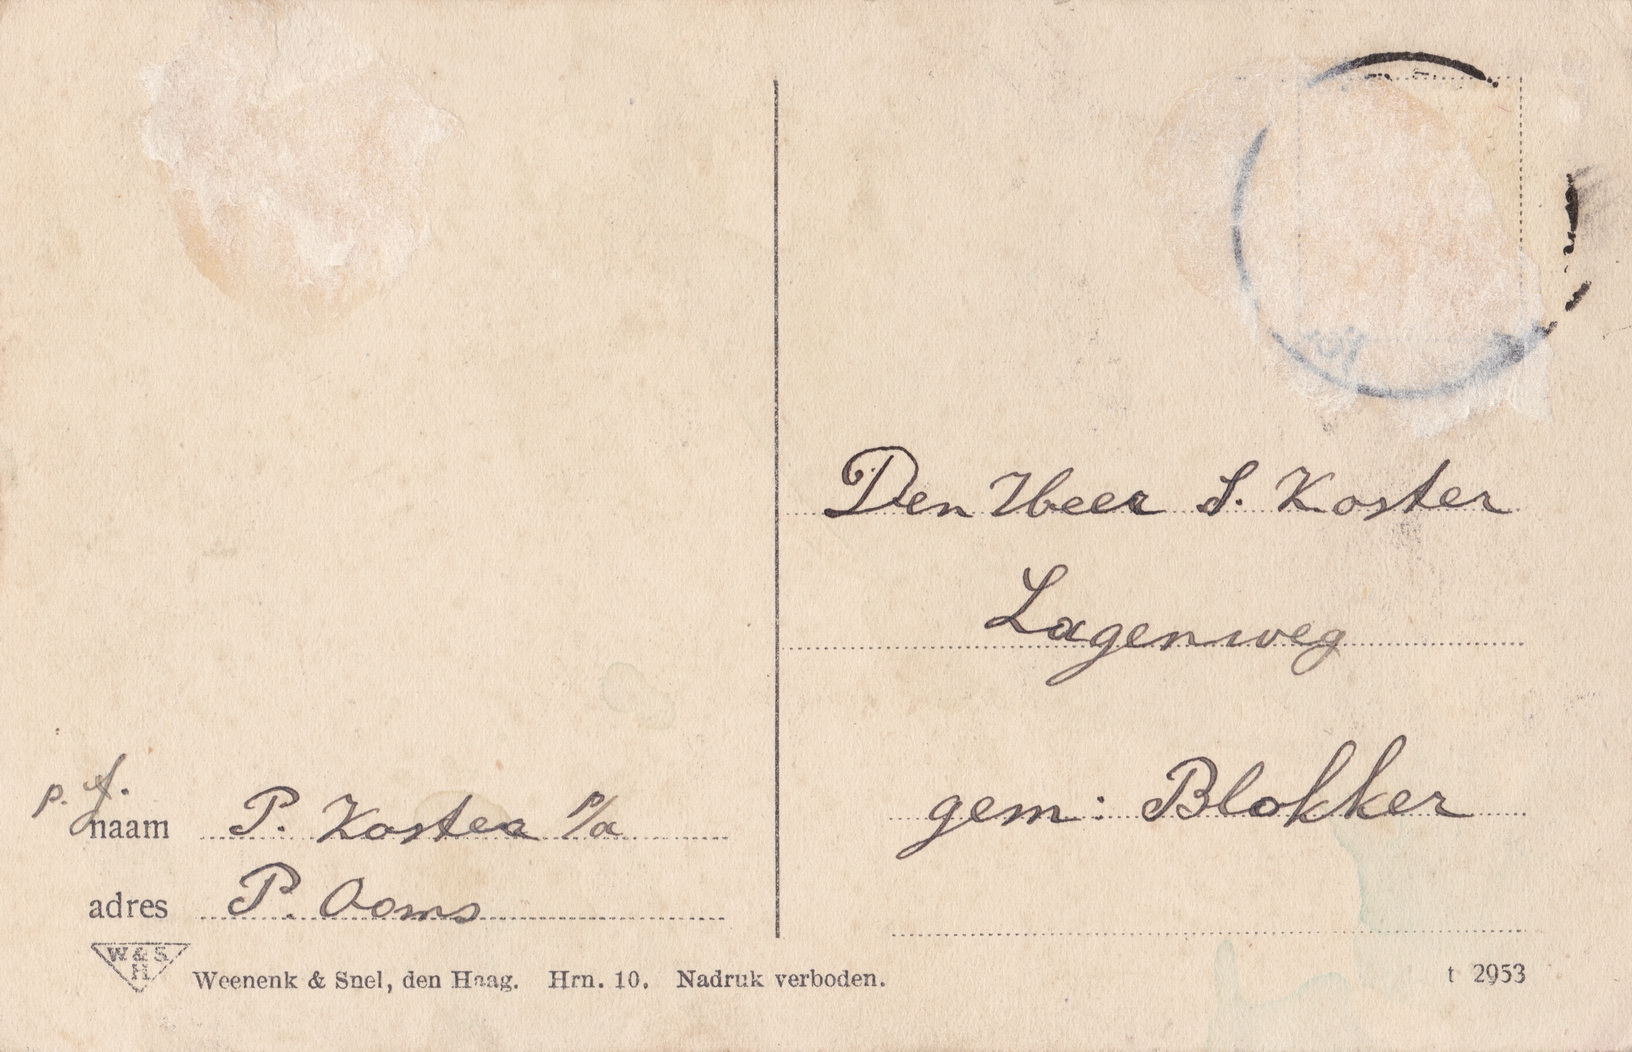 p. f.
naam P. Koster p/a
adres P. Ooms
W & S.
H
Weenenk & Snel, den Haag. Hrn. 10. Nadruk verboden.
Den Heer S. Koster
Lagenweg
gem: Blokker
t 2953